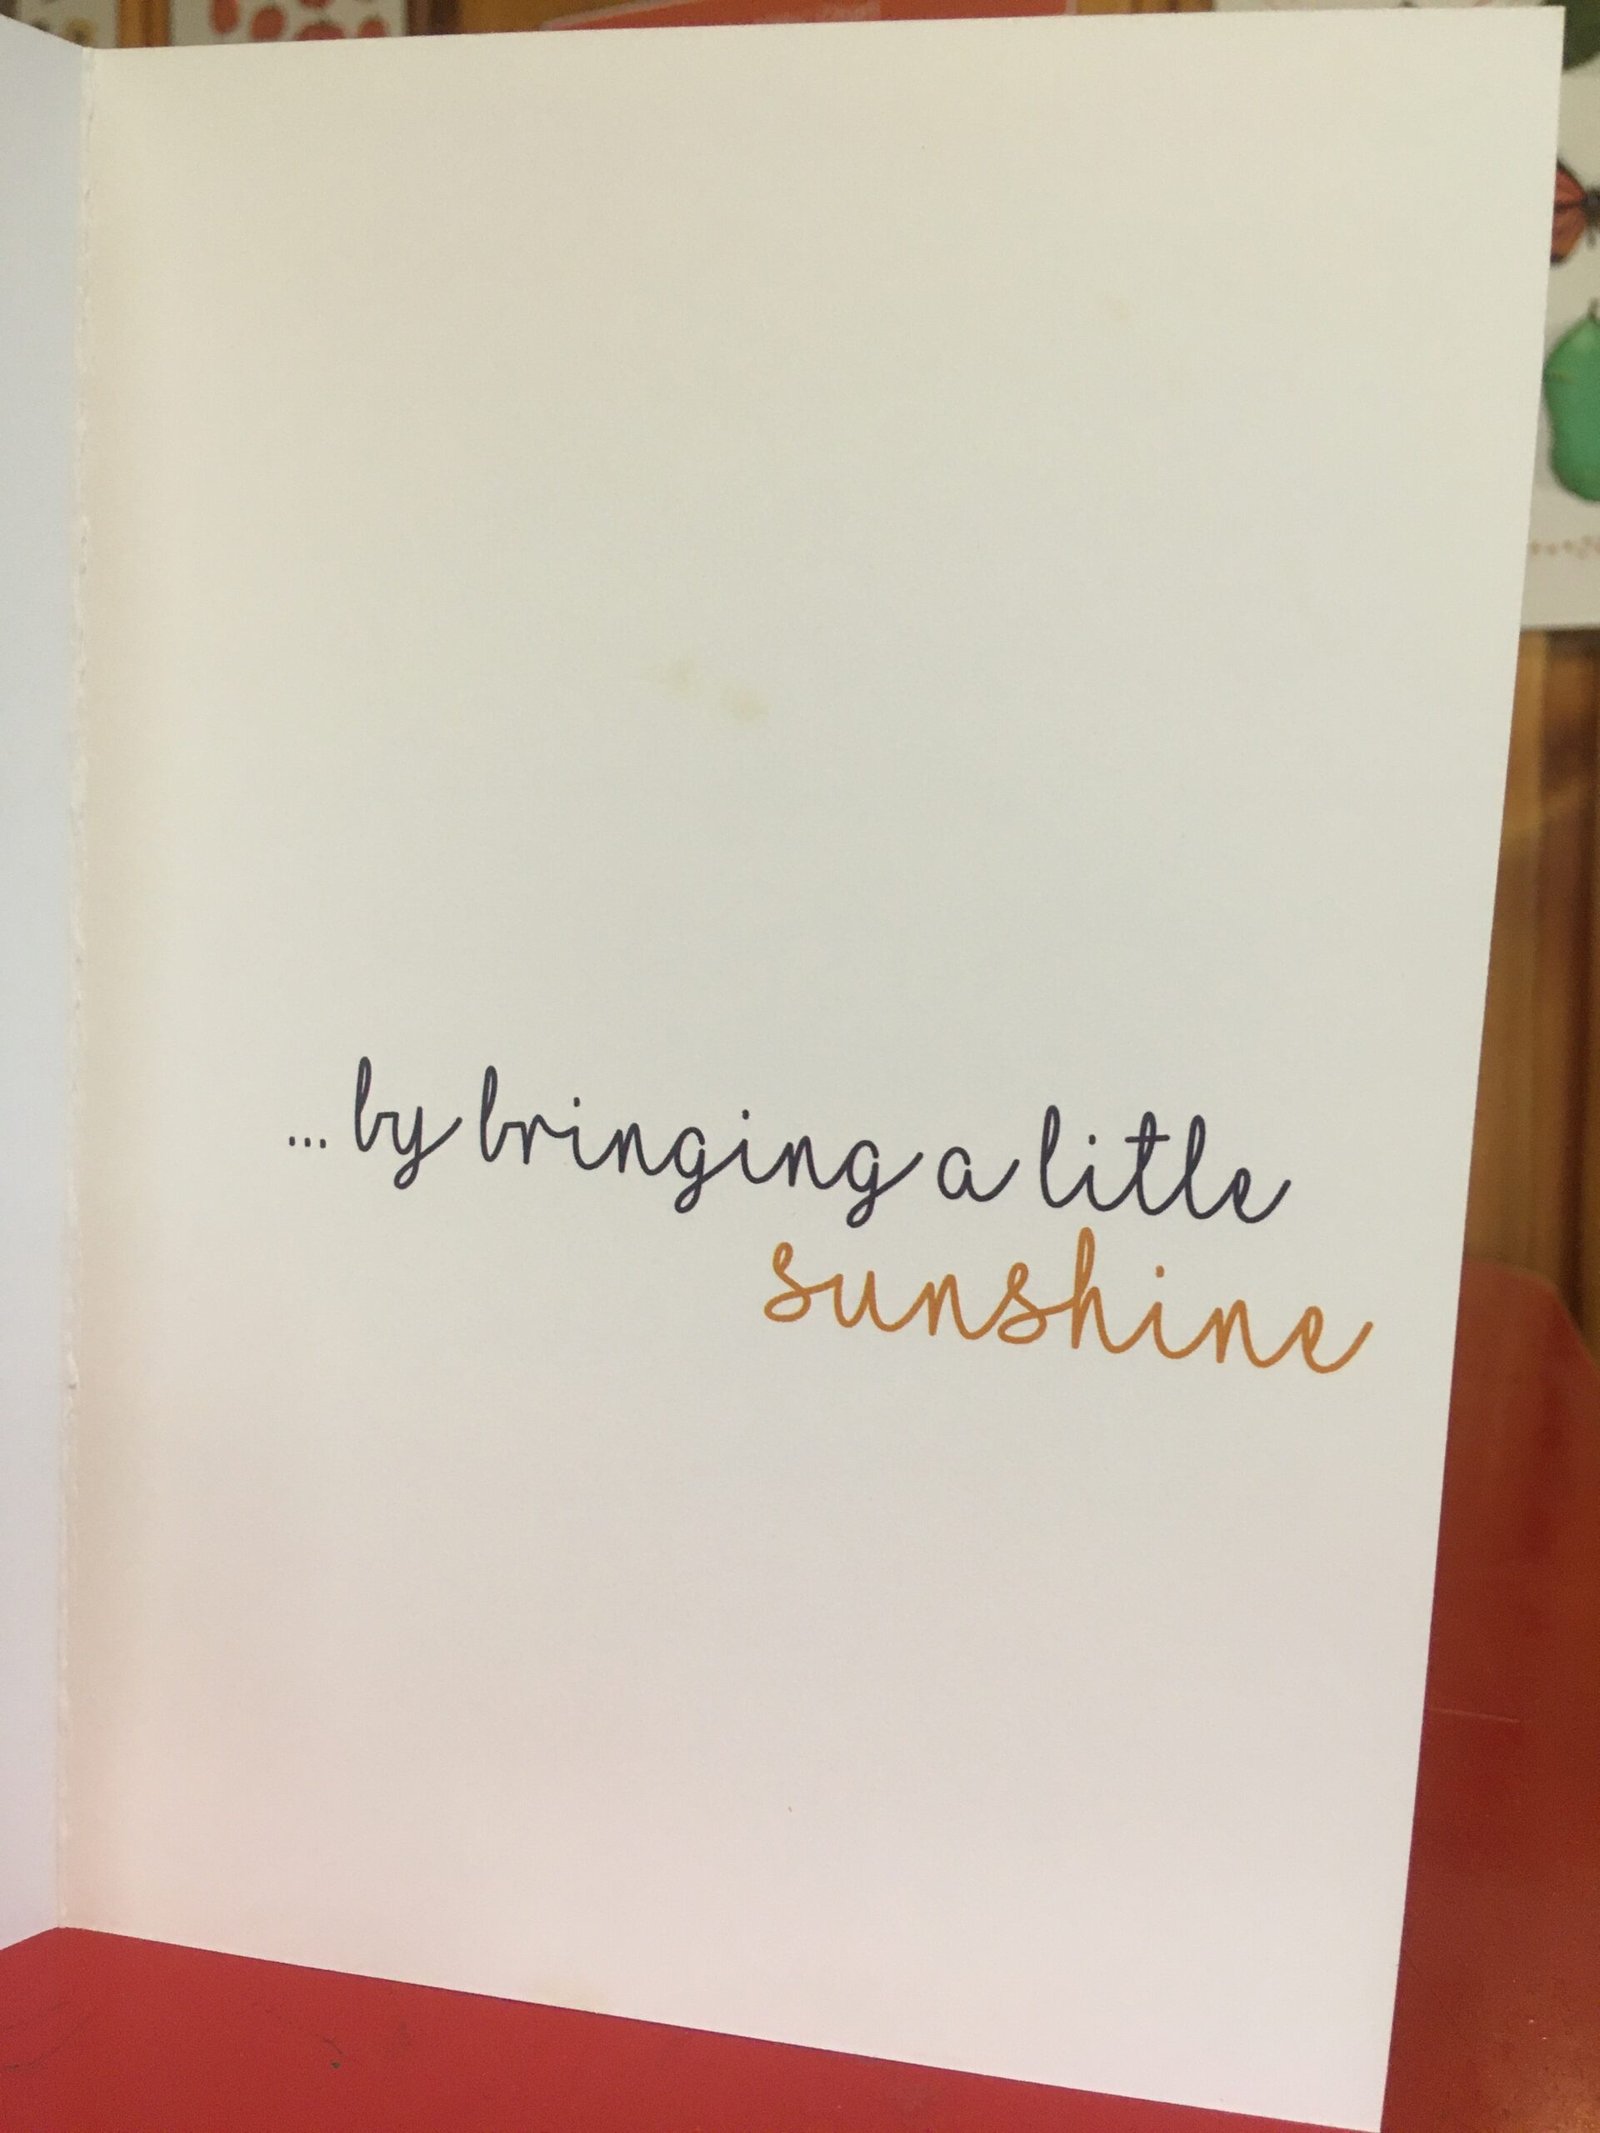 ...by bringing a little
sunshine